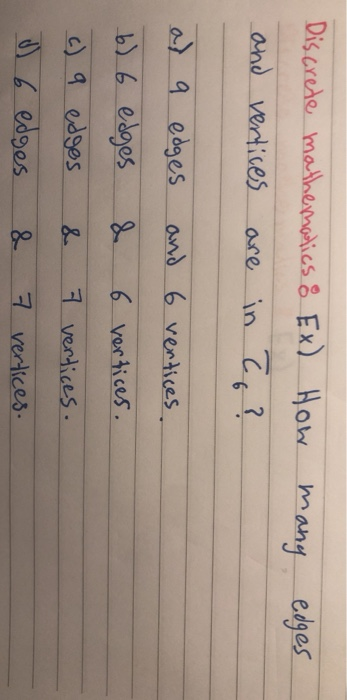 Discrete mathematics: Ex) How many edges
and vertices are in C̅₆?
a) 9 edges and 6 vertices.
b) 6 edges & 6 vertices.
c) 9 edges & 7 vertices.
d) 6 edges & 7 vertices.